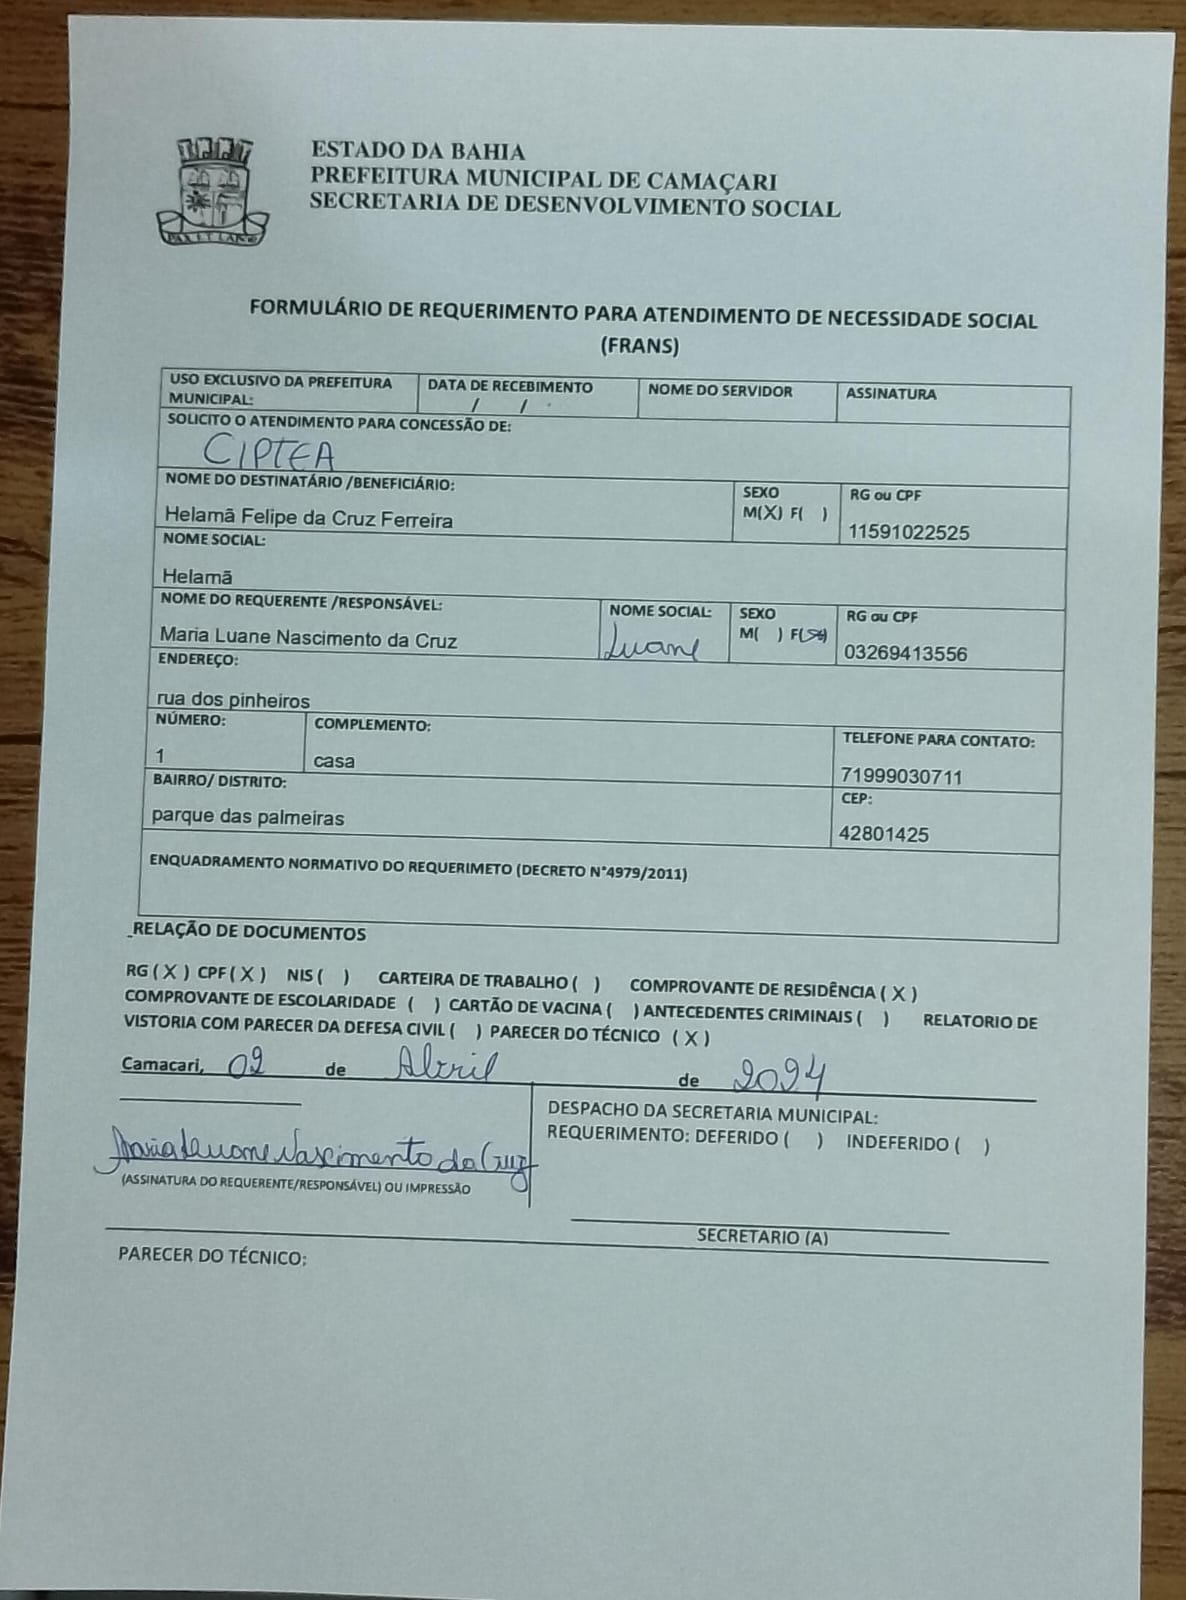 ESTADO DA BAHIA
PREFEITURA MUNICIPAL DE CAMAÇARI
SECRETARIA DE DESENVOLVIMENTO SOCIAL
FORMULÁRIO DE REQUERIMENTO PARA ATENDIMENTO DE NECESSIDADE SOCIAL
(FRANS)
USO EXCLUSIVO DA PREFEITURA MUNICIPAL:
DATA DE RECEBIMENTO
/ /
NOME DO SERVIDOR
ASSINATURA
SOLICITO O ATENDIMENTO PARA CONCESSÃO DE:
CIPTEA
NOME DO DESTINATÁRIO /BENEFICIÁRIO:
Helamã Felipe da Cruz Ferreira
SEXO
M(X) F( )
RG ou CPF
11591022525
NOME SOCIAL:
Helamã
NOME DO REQUERENTE /RESPONSÁVEL:
Maria Luane Nascimento da Cruz
NOME SOCIAL:
Luane
SEXO
M( ) F(X)
RG ou CPF
03269413556
ENDEREÇO:
rua dos pinheiros
NÚMERO:
1
COMPLEMENTO:
casa
TELEFONE PARA CONTATO:
71999030711
BAIRRO/ DISTRITO:
parque das palmeiras
CEP:
42801425
ENQUADRAMENTO NORMATIVO DO REQUERIMETO (DECRETO N°4979/2011)
RELAÇÃO DE DOCUMENTOS
RG (X) CPF (X) NIS ( ) CARTEIRA DE TRABALHO ( ) COMPROVANTE DE RESIDÊNCIA (X)
COMPROVANTE DE ESCOLARIDADE ( ) CARTÃO DE VACINA ( ) ANTECEDENTES CRIMINAIS ( ) RELATORIO DE
VISTORIA COM PARECER DA DEFESA CIVIL ( ) PARECER DO TÉCNICO (X)
Camacari, 02 de Abril de 2024
DESPACHO DA SECRETARIA MUNICIPAL:
REQUERIMENTO: DEFERIDO ( ) INDEFERIDO ( )
Maria Luane Nascimento da Cruz
(ASSINATURA DO REQUERENTE/RESPONSÁVEL) OU IMPRESSÃO
SECRETARIO (A)
PARECER DO TÉCNICO: